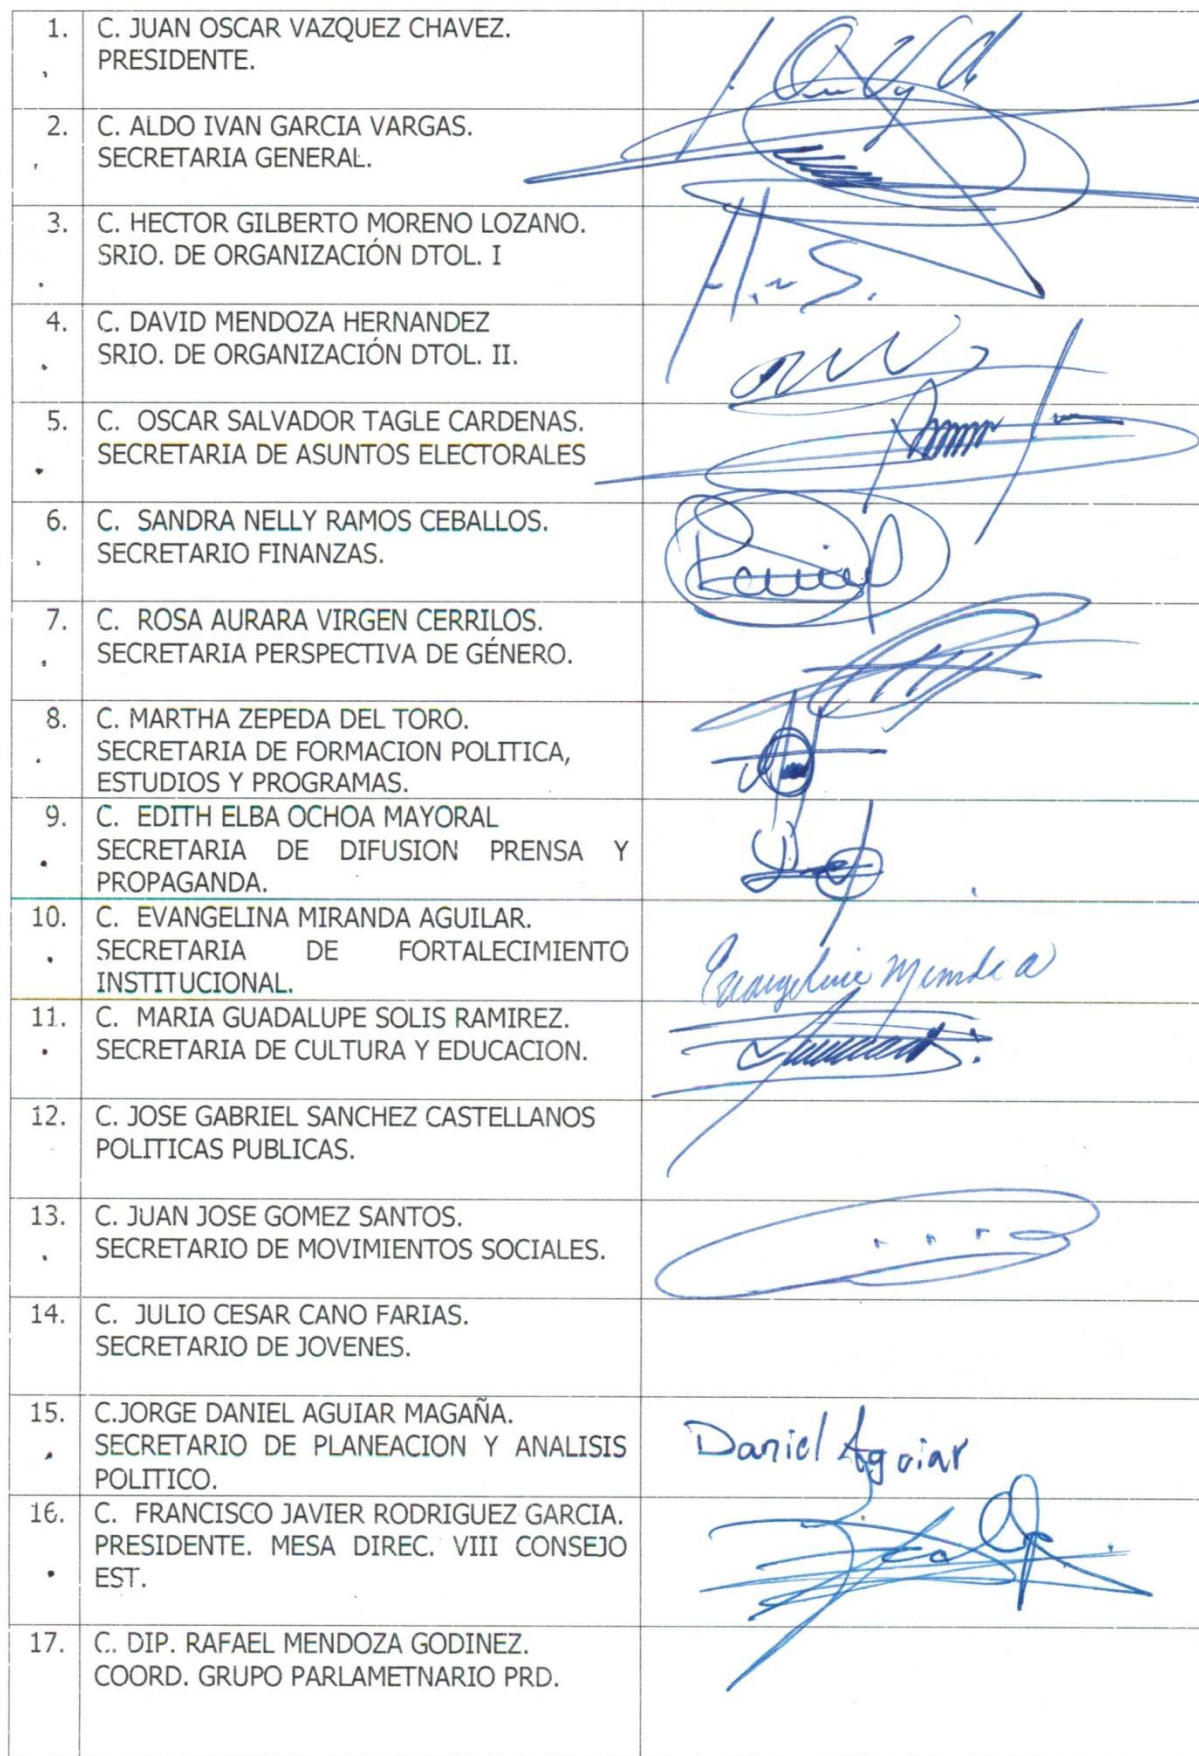 1. C. JUAN OSCAR VAZQUEZ CHAVEZ.
PRESIDENTE.
2. C. ALDO IVAN GARCIA VARGAS.
SECRETARIA GENERAL.
3. C. HECTOR GILBERTO MORENO LOZANO.
SRIO. DE ORGANIZACIÓN DTOL. I
4. C. DAVID MENDOZA HERNANDEZ
SRIO. DE ORGANIZACIÓN DTOL. II.
5. C. OSCAR SALVADOR TAGLE CARDENAS.
SECRETARIA DE ASUNTOS ELECTORALES
6. C. SANDRA NELLY RAMOS CEBALLOS.
SECRETARIO FINANZAS.
7. C. ROSA AURARA VIRGEN CERRILOS.
SECRETARIA PERSPECTIVA DE GÉNERO.
8. C. MARTHA ZEPEDA DEL TORO.
SECRETARIA DE FORMACION POLITICA,
ESTUDIOS Y PROGRAMAS.
9. C. EDITH ELBA OCHOA MAYORAL
SECRETARIA DE DIFUSION PRENSA Y
PROPAGANDA.
10. C. EVANGELINA MIRANDA AGUILAR.
SECRETARIA DE FORTALECIMIENTO
INSTITUCIONAL.
11. C. MARIA GUADALUPE SOLIS RAMIREZ.
SECRETARIA DE CULTURA Y EDUCACION.
12. C. JOSE GABRIEL SANCHEZ CASTELLANOS
POLITICAS PUBLICAS.
13. C. JUAN JOSE GOMEZ SANTOS.
SECRETARIO DE MOVIMIENTOS SOCIALES.
14. C. JULIO CESAR CANO FARIAS.
SECRETARIO DE JOVENES.
15. C.JORGE DANIEL AGUIAR MAGAÑA.
SECRETARIO DE PLANEACION Y ANALISIS
POLITICO.
Daniel Aguiar
16. C. FRANCISCO JAVIER RODRIGUEZ GARCIA.
PRESIDENTE. MESA DIREC. VIII CONSEJO
EST.
17. C. DIP. RAFAEL MENDOZA GODINEZ.
COORD. GRUPO PARLAMETNARIO PRD.